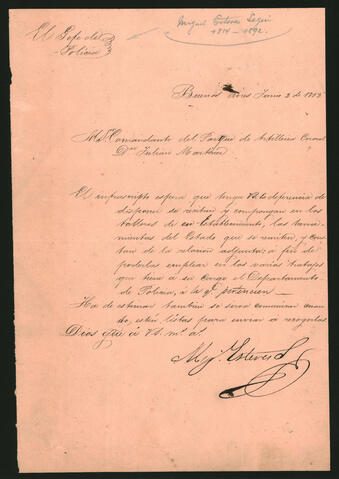 El Gefe de
Policia
Miguel Estevez Segui
1814 - 1892.
Buenos Aires Junio 2 de
Al Sr Comandante del Parque de Artilleria Coronel
Dn Julian Martinez
El infrascripto espera que tenga VS la deferencia de
disponer se revisen y compongan en los
talleres de su Establecimiento, las
del Estado que se remiten, y
de la relacion adjunta: a fin de
poderlas emplear en los varios trabajos
que tiene a su cargo el Departamento
de Policia, a la q.e pertenecen
Ha de estimar tambien se sirva comunicar cuan-
do, esten listas para enviar a recogerlas
Dios gue. á V.S. m.s a.s
Mig.l Estevez S